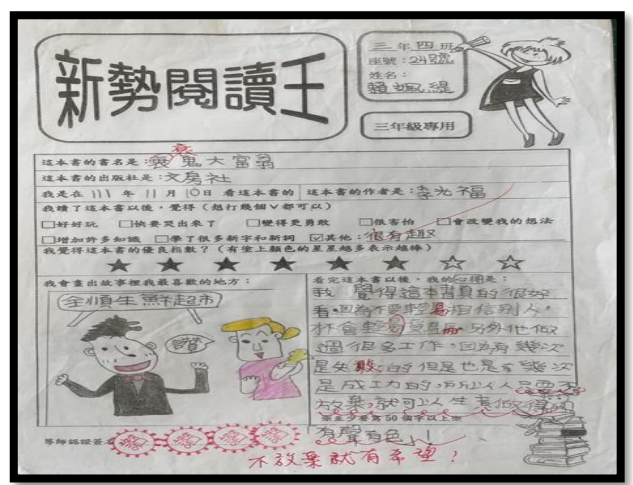 新勢閱讀王
三年四班
座號：24號
姓名：
賴
三年級專用
衰
這本書的書名是：衰鬼大富翁
這本書的出版社是：文房社
我是在 111 年 11 月 10日 看這本書的 這本書的作者是：李光福
我讀了這本書以後，覺得（想打幾個∨都可以）
□好好玩 □快要哭出來了 □變得更勇敢 □很害怕 □會改變我的想法
□增加許多知識 □學了很多新字和新詞 ☑其他：很有趣
我覺得這本書的優良指數？（有塗上顏色的星星越多表示越棒）
★ ★ ★ ★ ★ ★ ☆ ☆
我會畫出故事裡我最喜歡的地方：
全順生鮮超市
讚
看完這本書以後，我的心得是：
我覺得這本書真的很好
看。因為不要輕易相信別人，
才會輕易 另外他做
過很多工作，因為有幾次
是失敗的但是也是有幾次
是成功的，所以人只要不
放棄，就可以生著做得
※至少要寫 50 個字以上※
有聲有色！
導師認證簽名
不放棄就有希望！